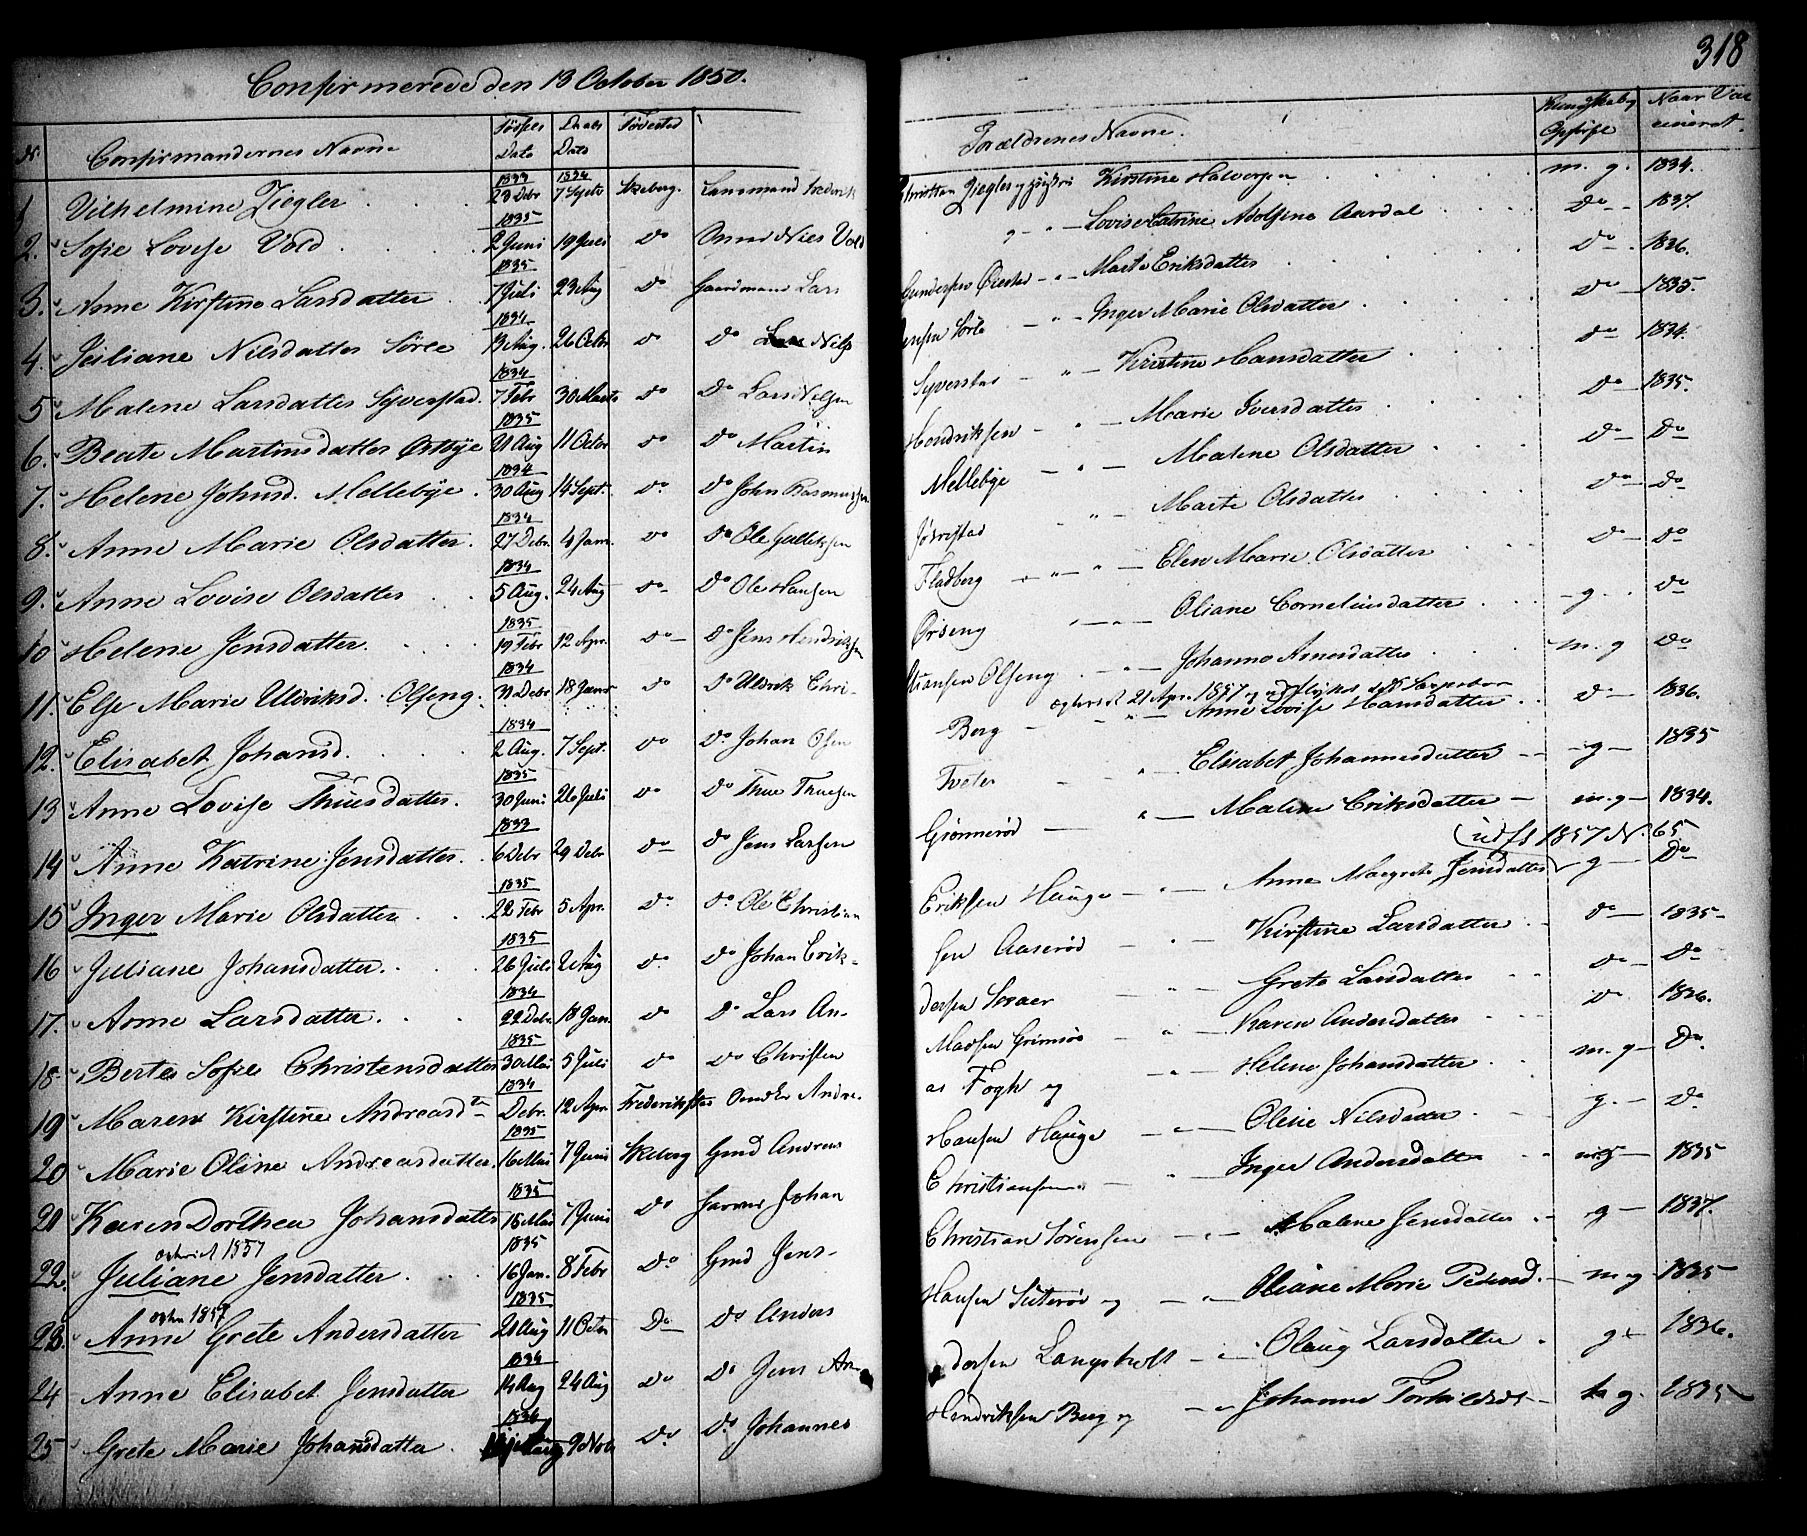 318
Confirmerede den 13 October 1850.
Nr. Confirmandernes Navne Fødsels Dato Daabs Dato Døbested Forældrenes Navne. Naar Vaccineret.
1 Vilhelmine Ziegler 1833 23 Debr 1834 7 Septr Skeberg. Lensmand Frederik Christian Ziegler og Hustru Kirstine Halvorsen m. g. 1834.
2. Sofie Lovise Vold 1835 2 Juni 19 Juli do Nils Vold og Lovise Catrine Adolfine Aardal do 1837.
3. Anne Kirstine Larsdatter 1835 7 Juli 23 Aug do Gaardmand Lars Gundersen Marte Eriksdatter do 1836.
4. Juliane Nilsdatter Sørle 1834 13 Aug. 26 Octbr do do Nils Jensen Sørle Inger Marie Olsdatter do 1835.
5 Malene Larsdatter Syverstad. 1834 7 Febr 30 Marts do do Lars Nilsen Syverstad Kirstine Hansdatter do 1834.
6. Beate Martinsdatter Østbye 1835 21 Aug 11 Octbr do do Martin Hendriksen Marie Iversdatter do 1835.
7. Helene Johnsd. Mellebye 1834 30 Aug 14 Sept. do do John Rasmussen Mellebye Malene Olsdatter do do
8. Anne Marie Olsdatter. 1834 27 Debr. 4 Jan. do do Ole Gulliksen Marte Olsdatter do do
9. Anne Lovise Olsdatter 1834 5 Aug. 24 Aug do do Ole Hansen Fladberg Elen Marie Olsdatter do do
10 Helene Jensdatter. 1835 19 Febr 12 Apr. do do Jens Hendriksen Ørseng Oliane Corneliusdatter g. do
11. Else Marie Uldriksd. Olseng. 1834 31 Debr 18 Janr do do Uldrik Christiansen Olseng Johanne Arnesdatter m. g do
12. Elisabet Johansd. 1834 2 Aug. 7 Sept. do do Johan Olsen Berg Anne Lovise Hansdatter do 1836.
13 Anne Lovise Thuesdatter. 1835 30 Juni 26 Juli do do Thue Thuesen Tveter Elisabet Johannesdatter g 1835
14 Anne Katrine Jensdatter. 1833 6 Debr 29 Debr do do Jens Larsen Grønnerød Malene Eriksdatter m. g 1834.
udfl 1857 N. 65
15 Inger Marie Olsdatter 1835 22 Febr 5 Apr. do do Ole Christian Eriksen Hauge Anne Margrete Jensdatter g do
16 Juliane Johansdatter. 1835 26 Juli 2 Aug do do Johan Eriksen Aaserød Kirstine Larsdatter do 1835
17. Anne Larsdatter. 1834 22 Debr. 18 Jan. do do Lars Andersen Grete Larsdatter do do
18. Berte Sofie Christensdatter 1835 30 Mai 5 Juli do do Christen Madsen Grimsø Karen Andersdatter do 1836.
19 Maren Kirstine Andreasdtr 1834 Debr. 12 Apr. Frederikstad Andreas Fogh og Helene Johansdatter m. g do
20 Marie Oline Andreasdatter. 1835 16 Mai 7 Juni Skeberg Gmd Andreas Hansen Hauge Oline Nilsdatter g. do
21 Karen Dorthea Johansdatter 1835 15 Mai 7 Juni do Johan Christiansen Inger Andersdatter mg 1835
22. Juliane Jensdatter 1835 16 Jan. 8 Febr do Gmd Jens Christian Sørensen Malene Jensdatter g 1837.
23. Anne Grete Andersdatter 1835 21 Aug 11 Octbr Do do Anders Hansen og Oliane Marie m g 1835
24 Anne Elisabet Jensdatter 1834 14 Aug 24 Aug do do Jens Andersen Langeholt Olaug Larsdatter g 1836.
25 Grete Marie Johansdatter 1834 9 Nov do do Johannes Hendriksen Berg og Johanne g. 1835